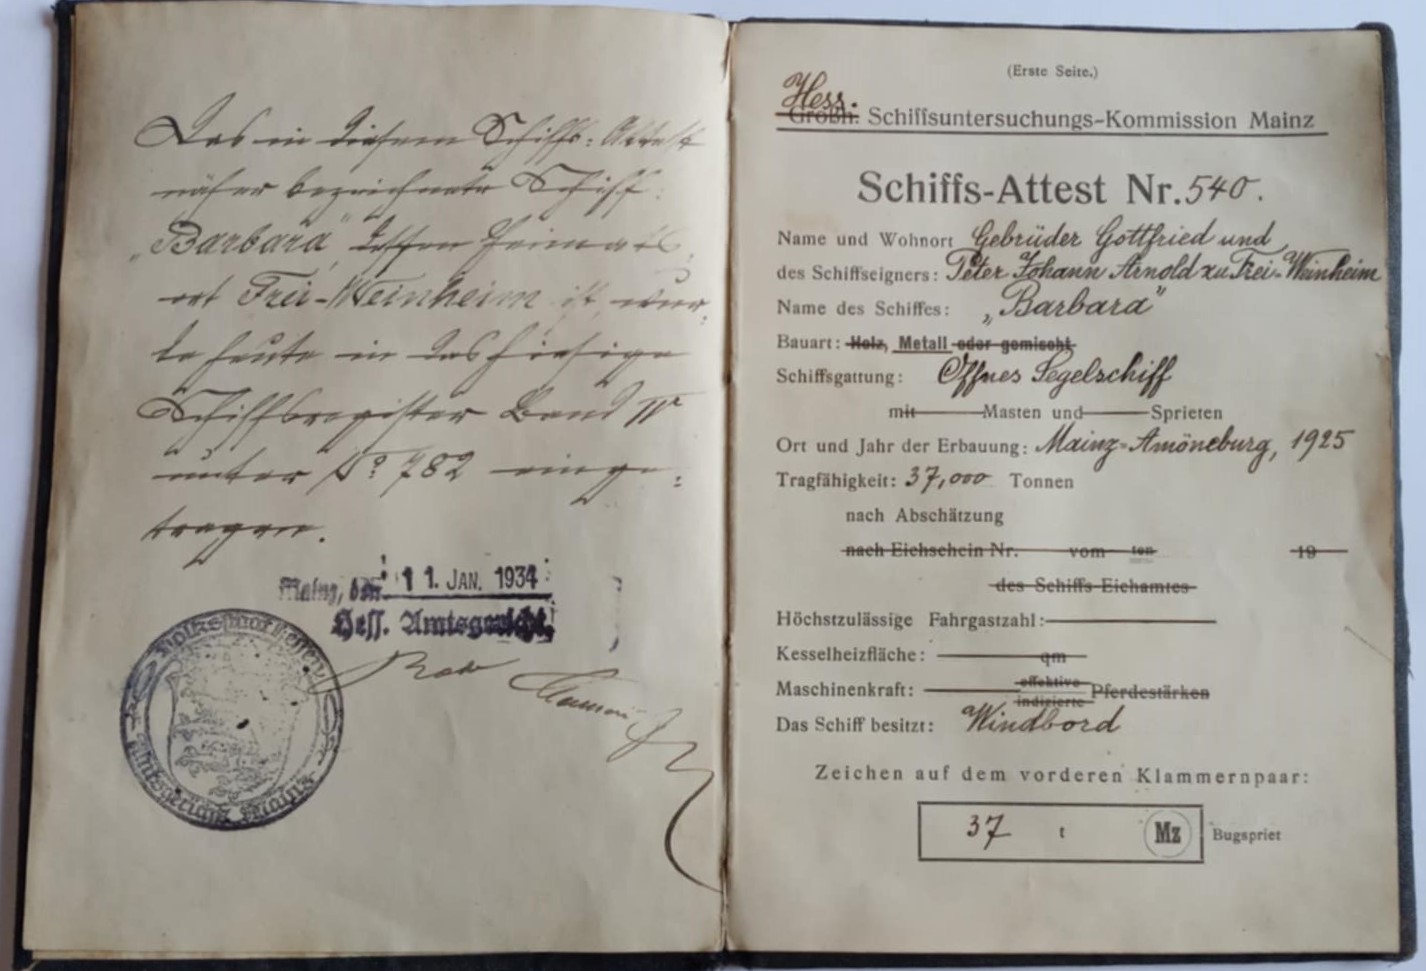 Das in diesem Schiffs-Attest
näher bezeichnete Schiff
„Barbara“, dessen Heimats-
ort Frei-Weinheim ist, wur-
de heute in das hiesige
Schiffsregister Band IV
unter No 782 einge-
tragen.
Mainz, den 11. JAN. 1934
Hess. Amtsgericht.
Volksstaat Hessen
Amtsgericht Mainz
(Erste Seite.)
Hess.
Großh. Schiffsuntersuchungs-Kommission Mainz
Schiffs-Attest Nr. 540.
Name und Wohnort Gebrüder Gottfried und
des Schiffseigners: Peter Johann Arnold zu Frei-Weinheim
Name des Schiffes: „Barbara“
Bauart: Holz, Metall oder gemischt
Schiffsgattung: Offnes Segelschiff
mit Masten und Sprieten
Ort und Jahr der Erbauung: Mainz-Amöneburg, 1925
Tragfähigkeit: 37,000 Tonnen
nach Abschätzung
nach Eichschein Nr. vom ten 19
des Schiffs-Eichamtes
Höchstzulässige Fahrgastzahl:
Kesselheizfläche: qm
Maschinenkraft: effektive indizierte Pferdestärken
Das Schiff besitzt: Windbord
Zeichen auf dem vorderen Klammernpaar:
37 t Mz Bugspriet